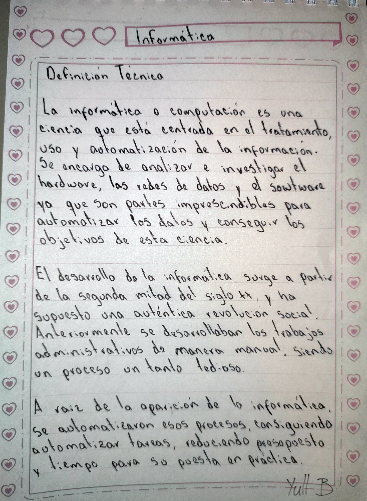 Informática
Definición Técnica
La informática o computación es una
ciencia que está centrada en el tratamiento,
uso y automatización de la información.
Se encarga de analizar e investigar el
hardware, las redes de datos y el sowtware
ya que son partes imprescindibles para
automatizar los datos y conseguir los
objetivos de esta ciencia.
El desarrollo de la informática surge a partir
de la segunda mitad del siglo xx, y ha
supuesto una auténtica revolución social.
Anteriormente se desarrollaban los trabajos
administrativos de manera manual. Siendo
un proceso un tanto tedioso.
A raíz de la aparición de la informática,
se automatizaron esos procesos, consiguiendo
automatizar tareas, reduciendo presupuesto
y tiempo para su puesta en práctica.